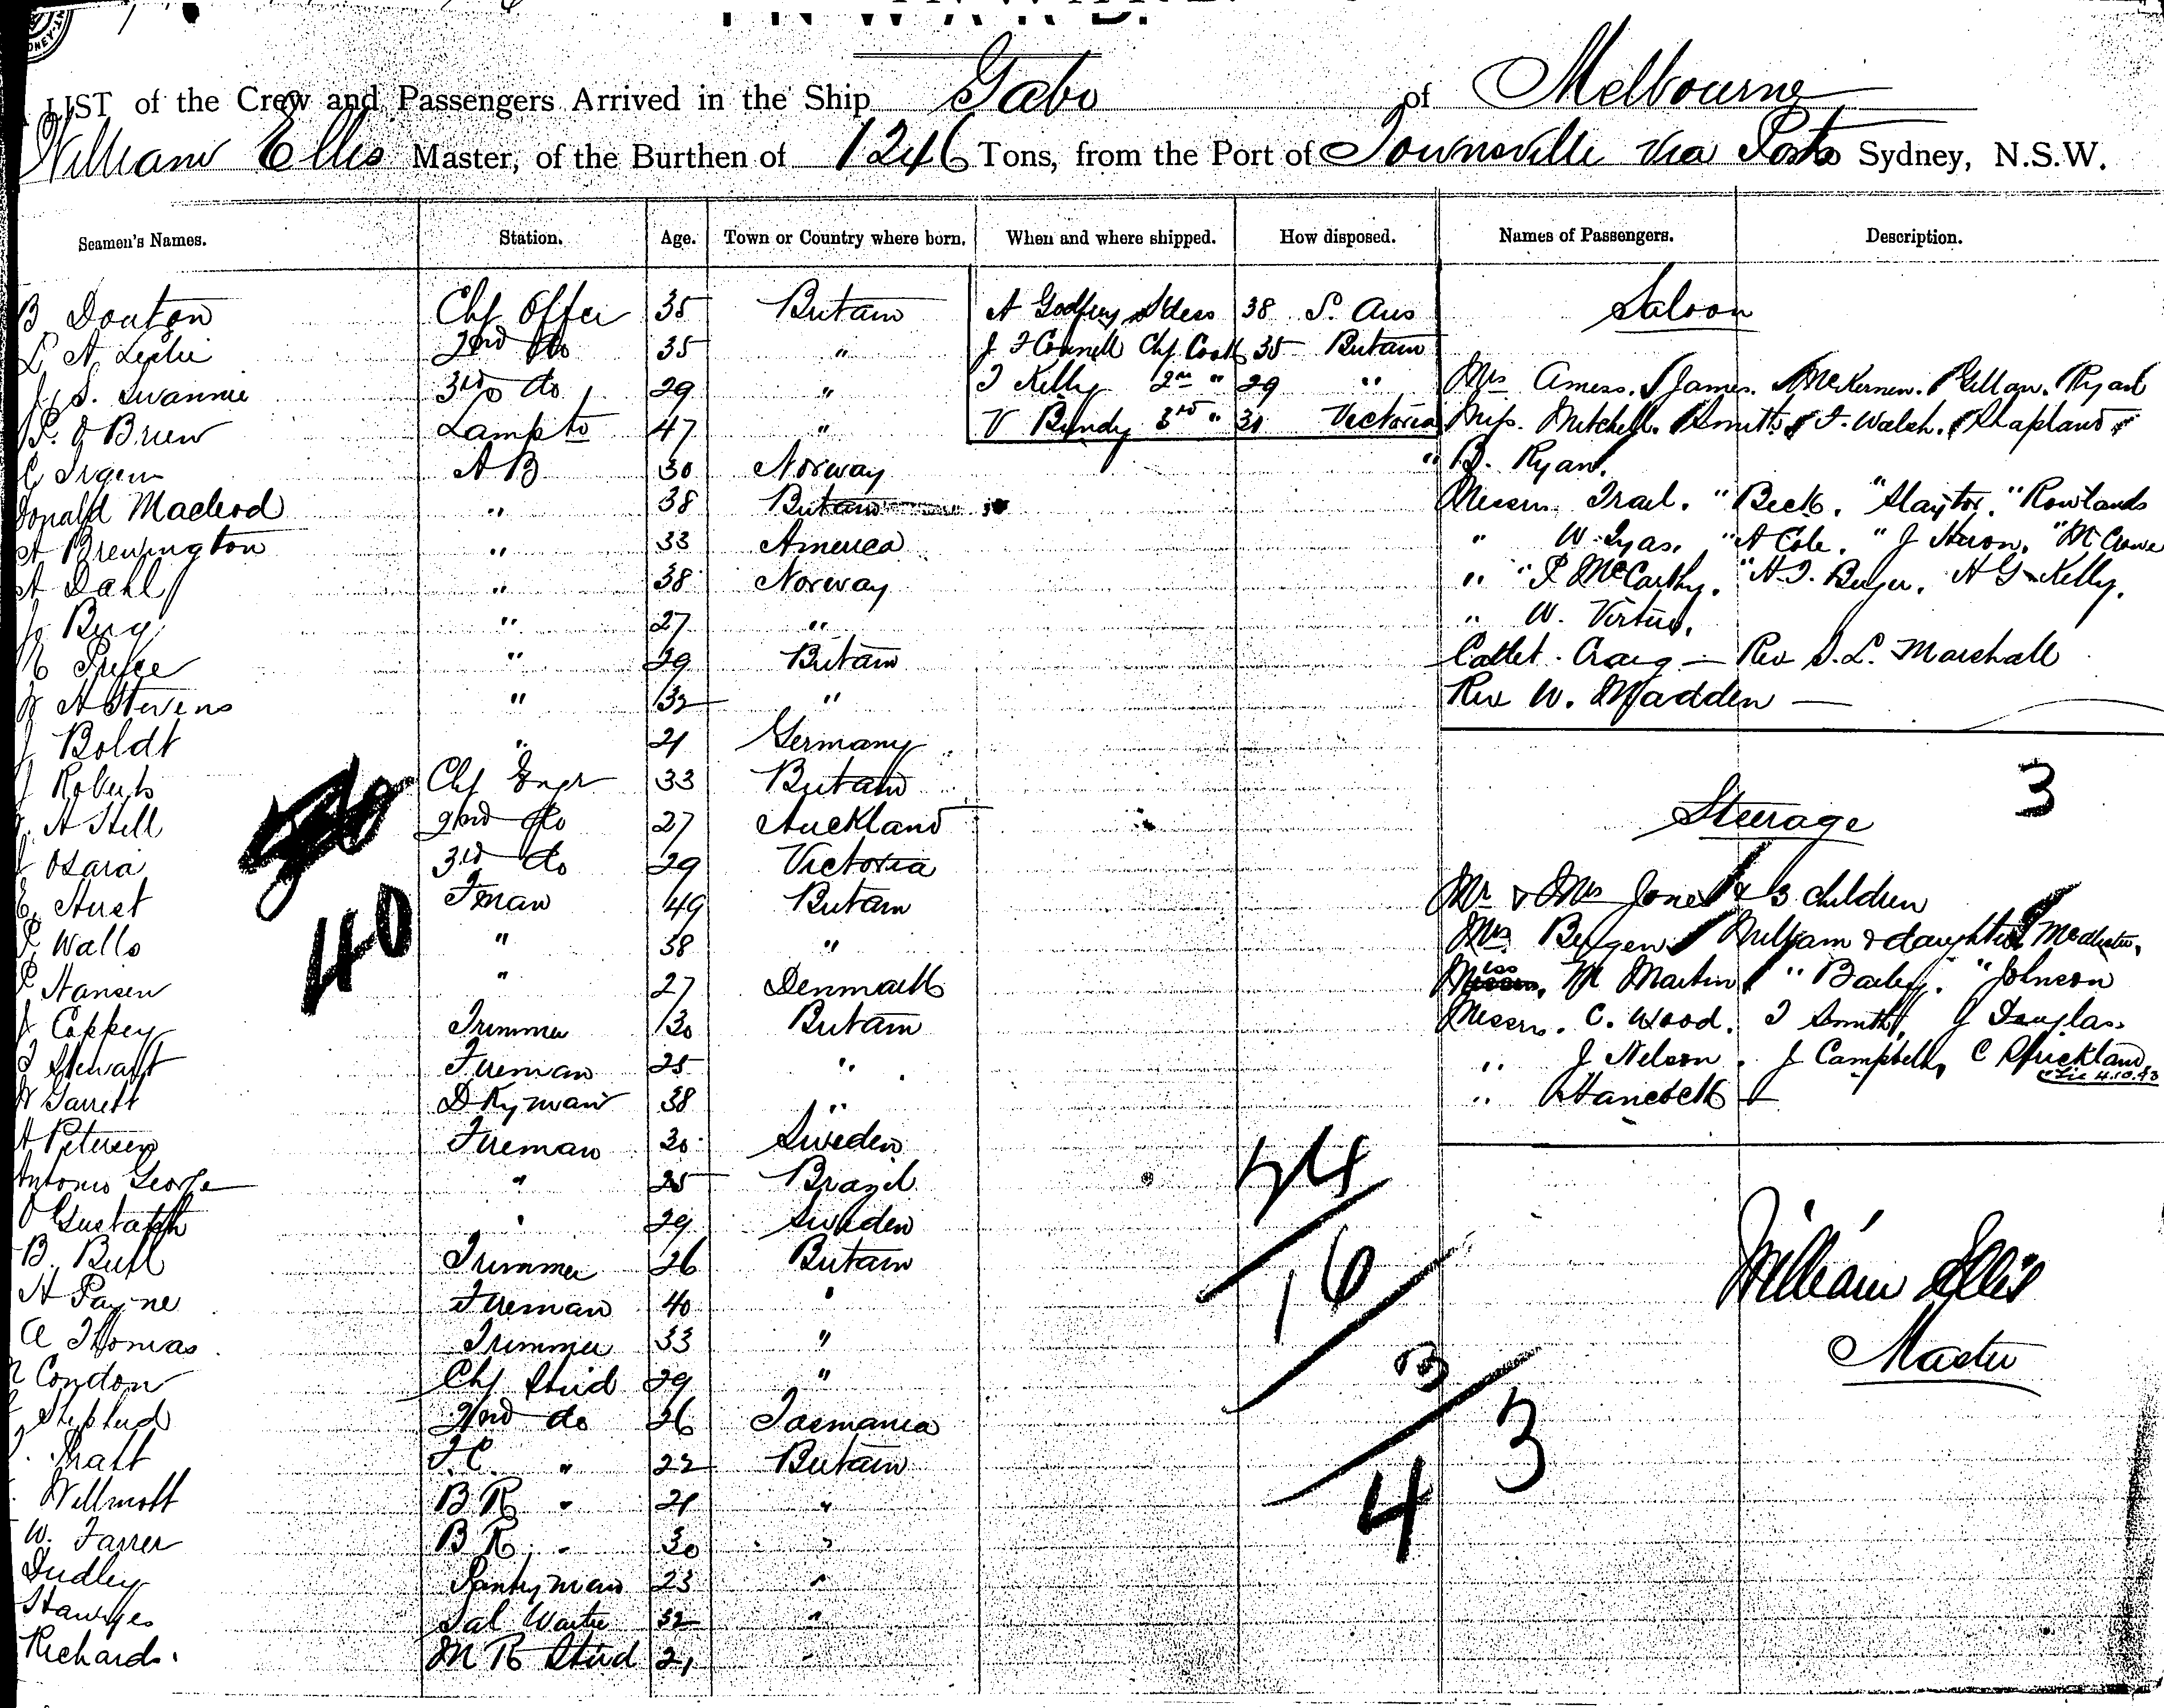 INWARD.
LIST of the Crew and Passengers Arrived in the Ship Gabo of Melbourne
William Ellis Master, of the Burthen of 1246 Tons, from the Port of Townsville via Ports Sydney, N.S.W.
Seamen's Names. Station. Age. Town or Country where born. When and where shipped. How disposed. Names of Passengers. Description.
B Douton Chf Offer 35 Britain
L A Leslie 2nd do 35 "
J. S. Swannie 3rd do 29 "
P. O Brien Lamps 47 "
C Irgens A B 30 Norway
Donald Macleod " 38 Britain
A Brewington " 33 America
A Dahl " 38 Norway
J Berg " 27 "
Price " 29 Britain
A Stevens " 32 "
J Boldt " 21 Germany
J Roberts Chf Engr 33 Britain
A Hill 2nd do 27 Auckland
J OHara 3rd do 29 Victoria
E. Hurst Fman 49 Britain
P. Walls " 38 "
P Hansen " 27 Denmark
J Coppey Trimmer 30 Britain
T Stewart Fireman 25 "
W Garrett D Kyman 38 "
A Petersen Fireman 30 Sweden
Antonio George " 25 Brazil
O Gustafth " 29 Sweden
B. Bull Trimmer 26 Britain
A Payne Fireman 40 "
A Thomas Trimmer 33 "
Condon Chf Stwd 29 "
Shepherd 2nd do 26 Tasmania
Pratt F.C. " 22 Britain
Willmott B R " 21 "
W. Farrer B R " 30 "
Dudley Pantryman 23 "
Hawkyes Sal Waiter 32 "
Richards. M R Stwd 21 "
40
A Godfrey Stdess 38 S. Aus
J F Connell Chf Cook 35 Britain
T Kelly 2nd " 29 "
V Bundy 3rd " 31 Victoria
Saloon
Mrs Amess. James. McKernen. Gillan. Ryan
Miss. Mitchell. Smith. F. Walsh. Shapland
" B. Ryan.
Messrs Israel. " Beck. " Slaytor. " Rowlands
" W. Lyas. " A Cole. " J Heron. " McCrowe
" " P McCarthy. " A. J. Beyer. A G Kelly.
" W. Virtue.
Cadet Craig — Rev S. L. Marshall
Rev W. Madden —
3
Steerage
Mr & Mrs Jones & 3 children
Mrs Bergen William & daughter McAlister,
Miss, M Martin " Bailey. " Johnson
Messrs. C. Wood. T Smith, J Douglas
" J Nelson. J Campbell, C Strickland
" Hancock
44
16
3
3
4
William Ellis
Master